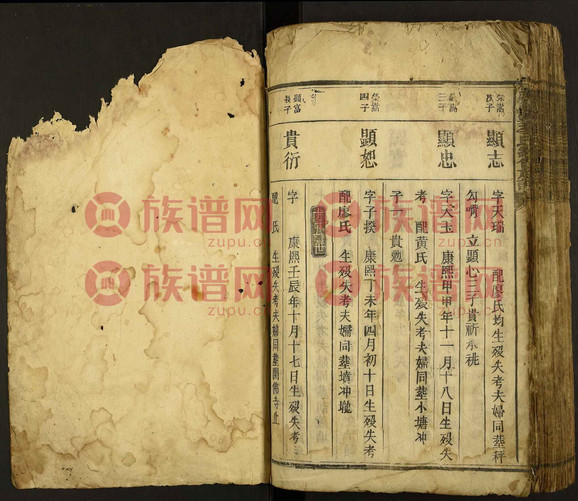 榮嵩
次子
顯志
字天瑞 配廖氏均生歿失考夫婦同墓秤
勾灣 立顯心三子貴祈承祧
三子
顯忠
字天玉 康熙甲申年十一月十八日生歿失
考 配黃氏 生歿失考夫婦同墓小塘冲
子一 貴勉
榮嵩
四子
顯恕
字子揆 康熙丁未年四月初十日生歿失考
配廖氏 生歿失考夫婦同墓塘冲壠
顯富
長子
貴衍
字 康熙壬辰年十月十七日生歿失考
配 氏 生歿失考夫婦同墓
族谱网
zupu.cn
族谱网
zupu.cn
族谱网
zupu.cn
族谱网
zupu.cn